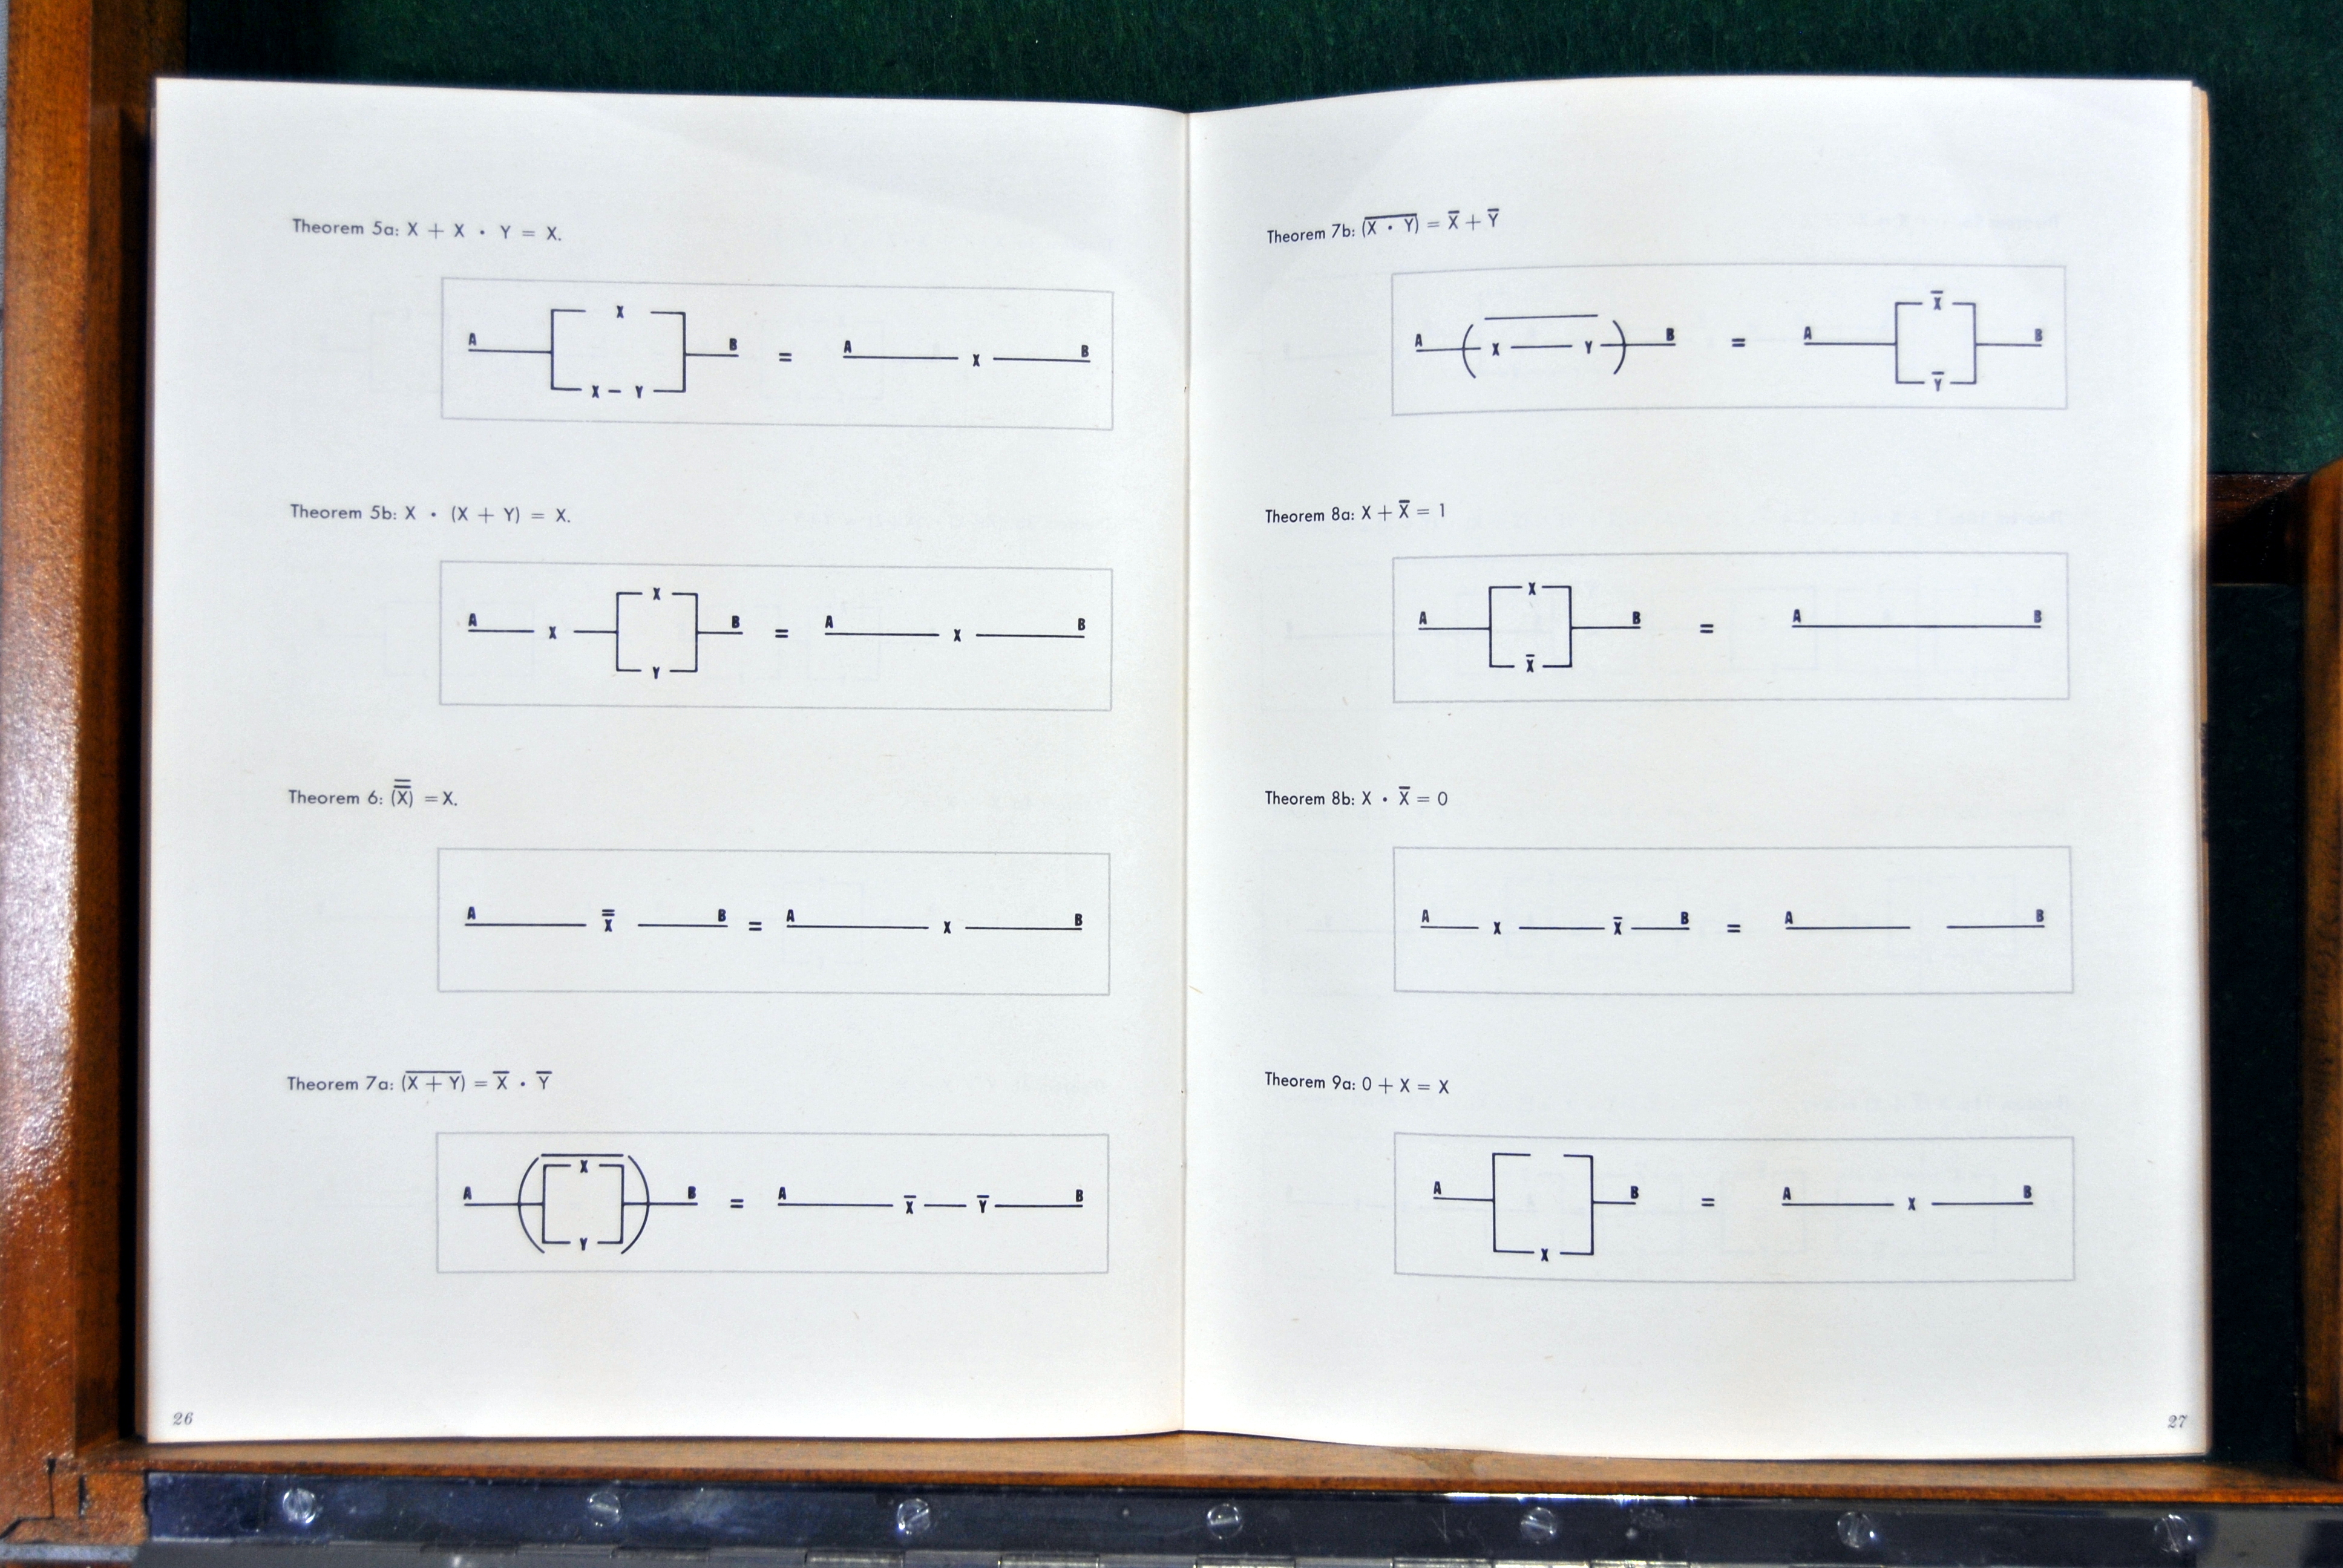 Theorem 5a: X + X · Y = X.
X
A B = A X B
X — Y
Theorem 5b: X · (X + Y) = X.
X
A X B = A X B
Y
Theorem 6: (X̿) = X.
A X̿ B = A X B
Theorem 7a: (X̅ ̅+̅ ̅Y̅) = X̅ · Y̅
X
A B = A X̅ Y̅ B
Y
26
Theorem 7b: (X̅ ̅·̅ ̅Y̅) = X̅ + Y̅
X̅
A ( X Y ) B = A B
Y̅
Theorem 8a: X + X̅ = 1
X
A B = A B
X̅
Theorem 8b: X · X̅ = 0
A X X̅ B = A B
Theorem 9a: 0 + X = X
A B = A X B
X
27